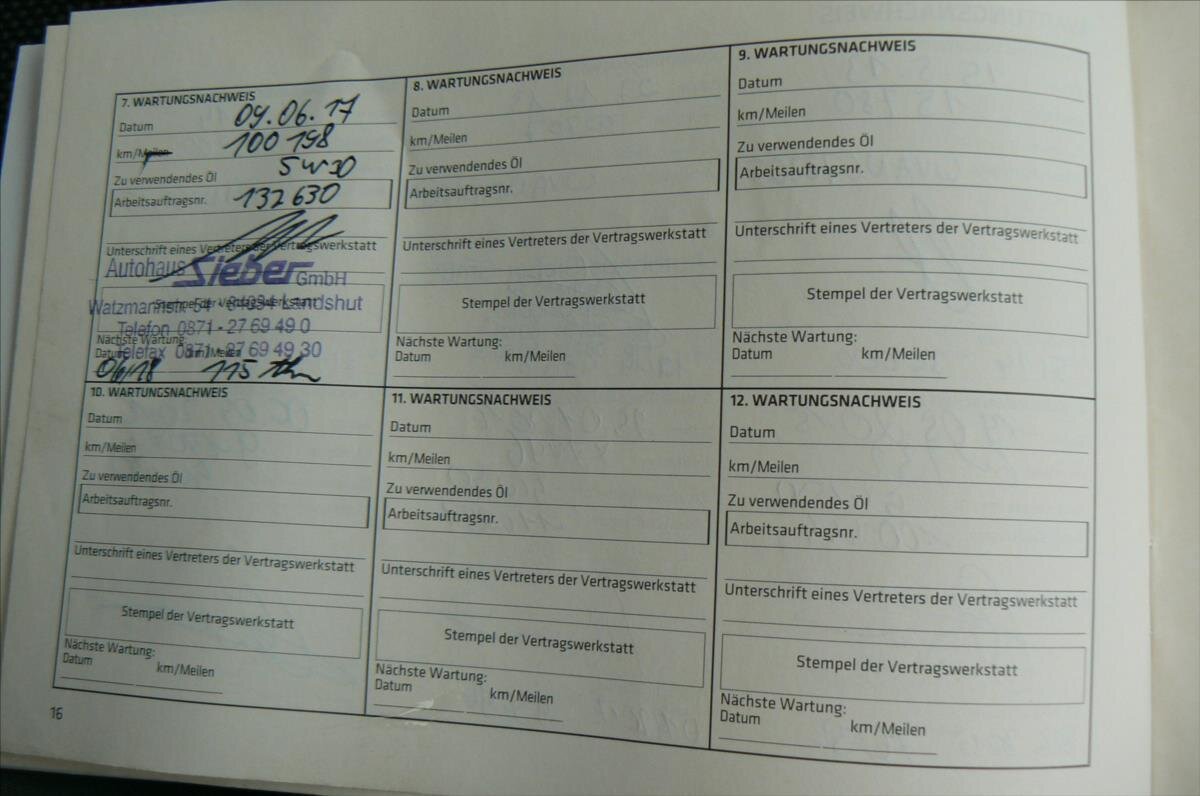 7. WARTUNGSNACHWEIS
Datum 09.06.17
km/Meilen 100 198
Zu verwendendes Öl 5W30
Arbeitsauftragsnr. 132 630
Unterschrift eines Vertreters der Vertragswerkstatt
Autohaus Sieber GmbH
Stempel der Vertragswerkstatt
Watzmannstr. 54 - 84034 Landshut
Telefon 0871 - 27 69 49 0
Nächste Wartung:
Telefax 0871 - 27 69 49 30
Datum km/Meilen
06/18 115
8. WARTUNGSNACHWEIS
Datum
km/Meilen
Zu verwendendes Öl
Arbeitsauftragsnr.
Unterschrift eines Vertreters der Vertragswerkstatt
Stempel der Vertragswerkstatt
Nächste Wartung:
Datum km/Meilen
9. WARTUNGSNACHWEIS
Datum
km/Meilen
Zu verwendendes Öl
Arbeitsauftragsnr.
Unterschrift eines Vertreters der Vertragswerkstatt
Stempel der Vertragswerkstatt
Nächste Wartung:
Datum km/Meilen
10. WARTUNGSNACHWEIS
Datum
km/Meilen
Zu verwendendes Öl
Arbeitsauftragsnr.
Unterschrift eines Vertreters der Vertragswerkstatt
Stempel der Vertragswerkstatt
Nächste Wartung:
Datum km/Meilen
11. WARTUNGSNACHWEIS
Datum
km/Meilen
Zu verwendendes Öl
Arbeitsauftragsnr.
Unterschrift eines Vertreters der Vertragswerkstatt
Stempel der Vertragswerkstatt
Nächste Wartung:
Datum km/Meilen
12. WARTUNGSNACHWEIS
Datum
km/Meilen
Zu verwendendes Öl
Arbeitsauftragsnr.
Unterschrift eines Vertreters der Vertragswerkstatt
Stempel der Vertragswerkstatt
Nächste Wartung:
Datum km/Meilen
16